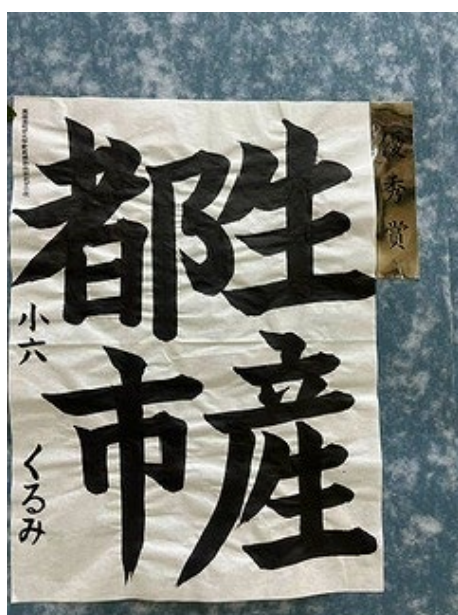 優秀賞
生産
都市
小六 くるみ